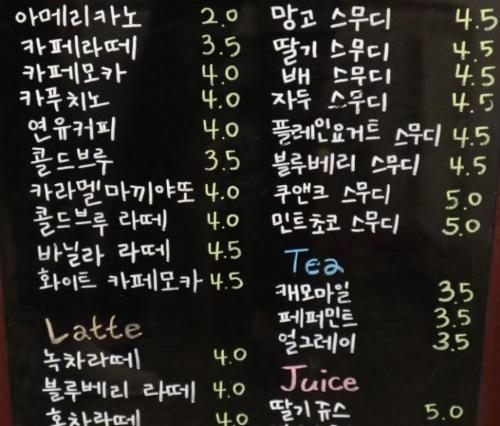 아메리카노 2.0
카페라떼 3.5
카페모카 4.0
카푸치노 4.0
연유커피 4.0
콜드브루 3.5
카라멜마끼야또 4.0
콜드브루 라떼 4.0
바닐라 라떼 4.5
화이트 카페모카 4.5
Latte
녹차라떼 4.0
블루베리 라떼 4.0
홍차라떼 4.0
망고 스무디 4.5
딸기 스무디 4.5
배 스무디 4.5
자두 스무디 4.5
플레인요거트 스무디 4.5
블루베리 스무디 4.5
쿠앤크 스무디 5.0
민트초코 스무디 5.0
Tea
캐모마일 3.5
페퍼민트 3.5
얼그레이 3.5
Juice
딸기 쥬스 5.0